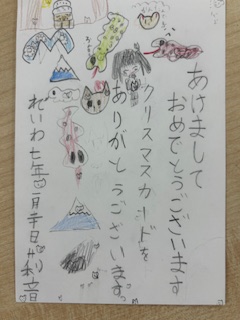 あけまして
おめでとうございます
クリスマスカードを
ありがとうございます。
れいわ七年一月